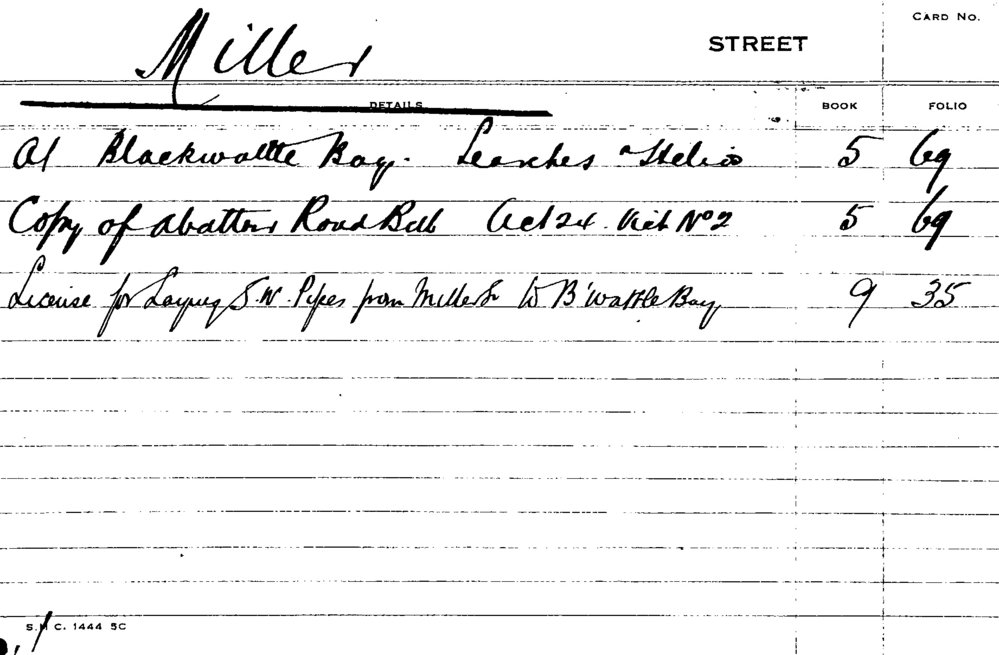 Miller STREET CARD No.
DETAILS BOOK FOLIO
At Blackwattle Bay. Searches 5 69
Copy of Abattoir Road Bill Act 24 Vict No 2 5 69
License for Laying S.W. Pipes from Miller St to B'wattle Bay 9 35
S.M C. 1444 5C